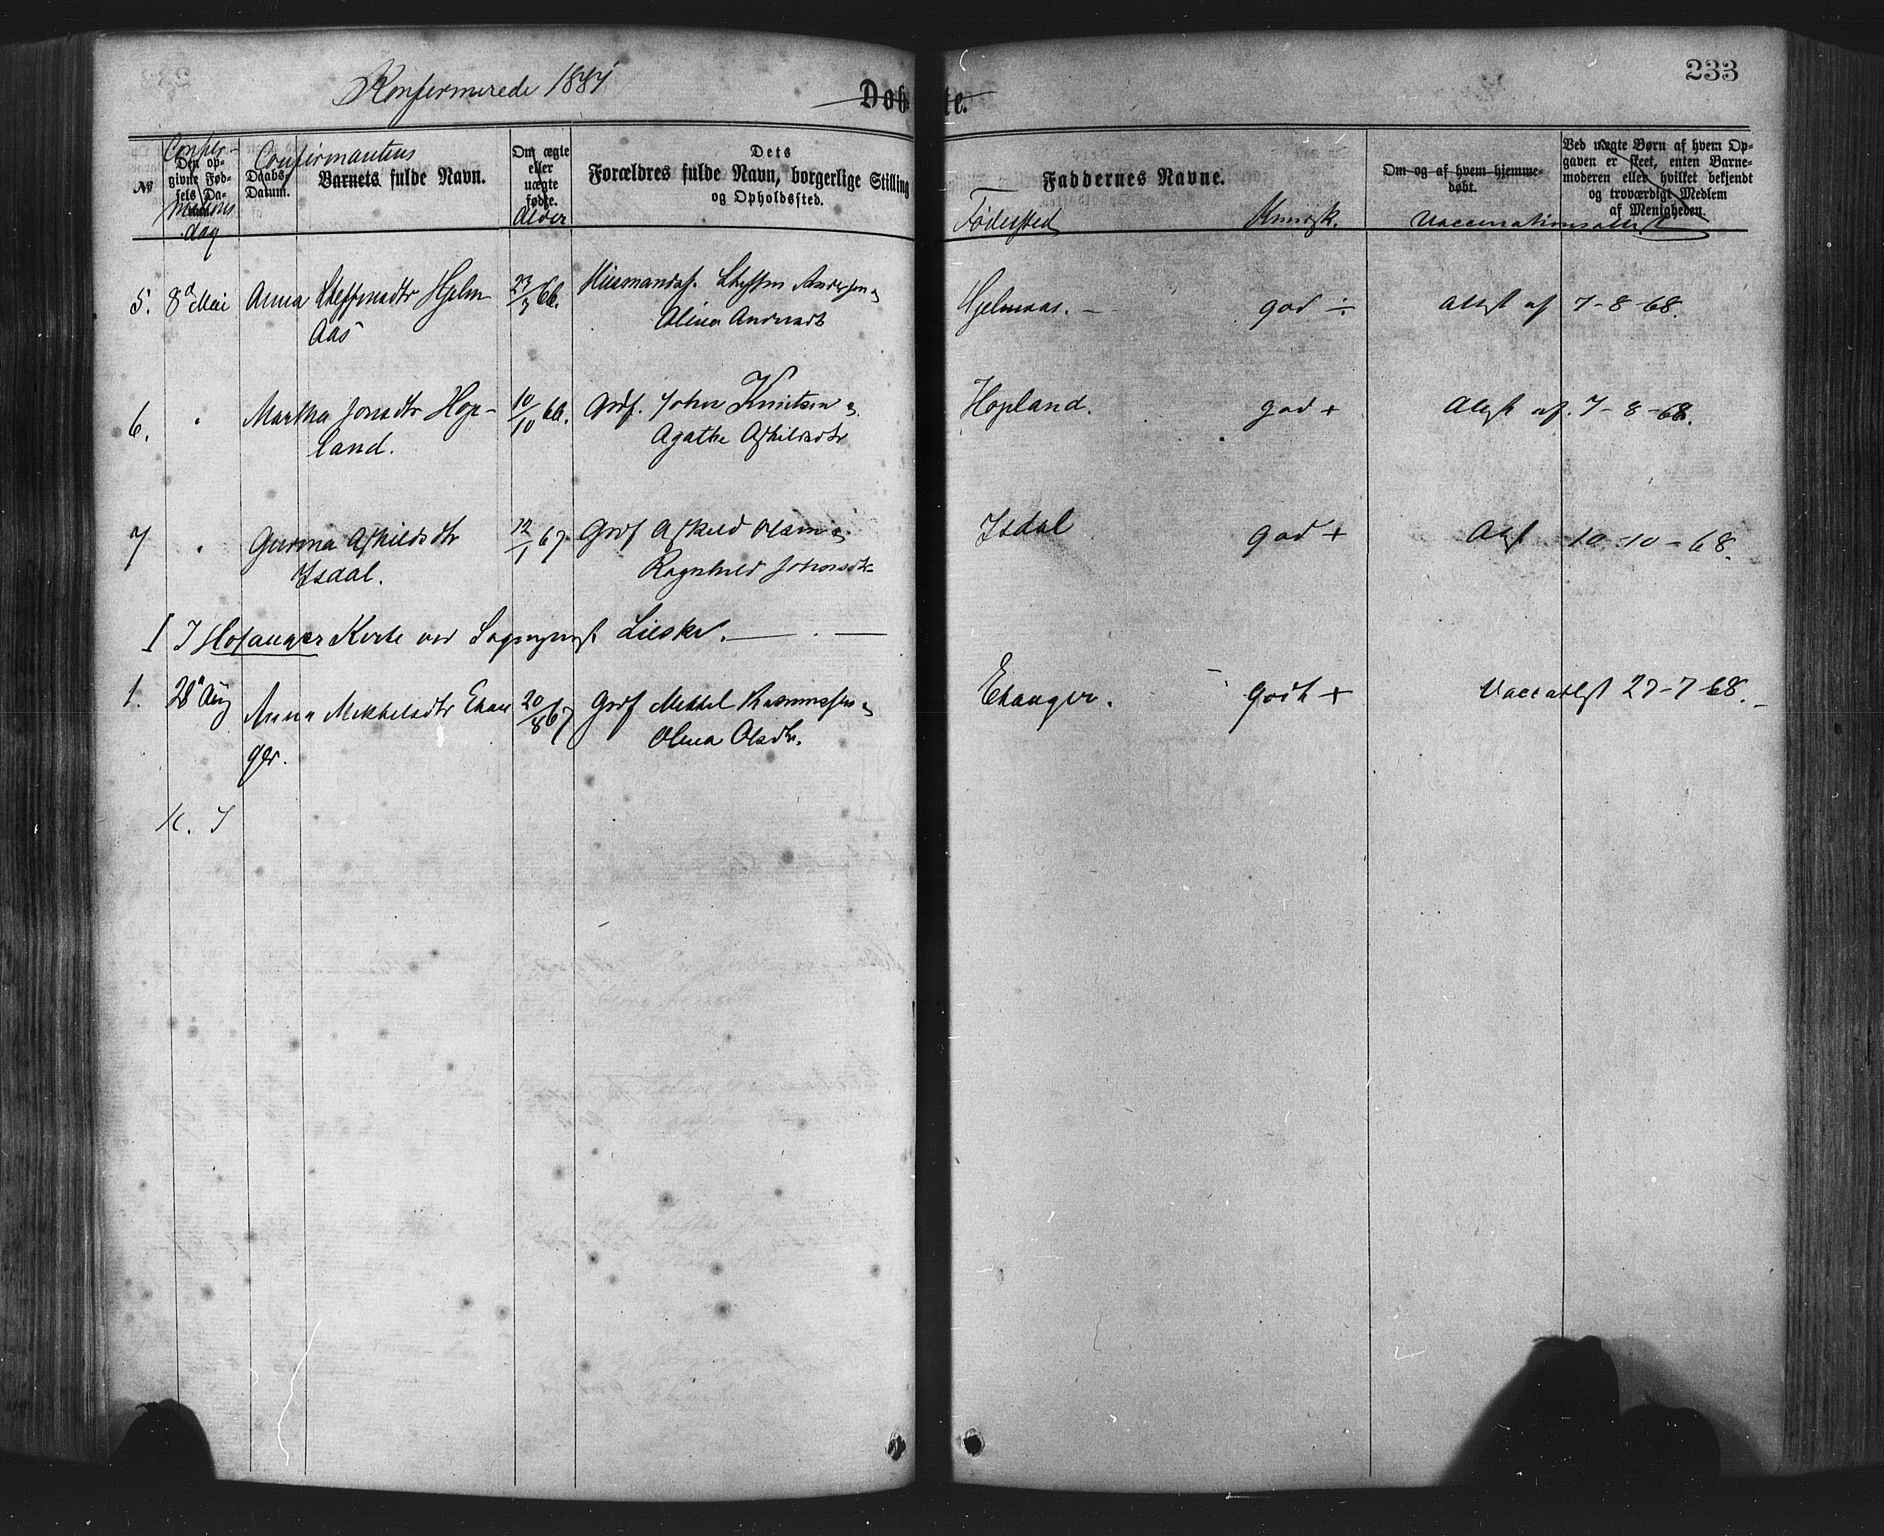 233
Konfermerede 1881
Døbte.
№
Confermations dag
Den opgivne Fødsels Datum.
Daabs Datum.
Confirmantens
Barnets fulde Navn.
Om ægte eller uægte fødte.
Alder
Dets
Forældres fulde Navn, borgerlige Stilling
og Opholdssted.
Faddernes Navne.
Fødersted
Kundsk.
Om og af hvem hjemmedøbt.
Ved uægte Børn af hvem Opgaven er skeet, enten Barnemoderen eller hvilket bekjendt og troværdigt Medlem af Menigheden.
Vaccinationsattest
5. 8d Mai Anna Steffensdtr Hjelm 23/7 66. Husmandsf. Steffen Andersen & Hjelmaas. — god ÷ Attest af 7-8-68.
Aas Olina Andersdt
6. " Martha Jonsdtr Hop- 10/10 66. Grdf. John Knutsen & Hopland. god + Attest af. 7-8-68.
land. Agathe Askildsdtr
7 " Gurina Askildsdtr 12/1 67 Grdf Askild Olsen & Isdal god + Attst 10-10-68.
Isdal. Ragnhild Johnsdtr
I I Hosanger Kirke ved Sogneprest Lieske.
1. 28d Aug Anna Mikkelsdtr Ekan 20/8 67 Grdf Mikkel Rasmussen & Ekanger. godt + Vaccattest 27-7-68.
ger. Olina Olsdtr.
K. I